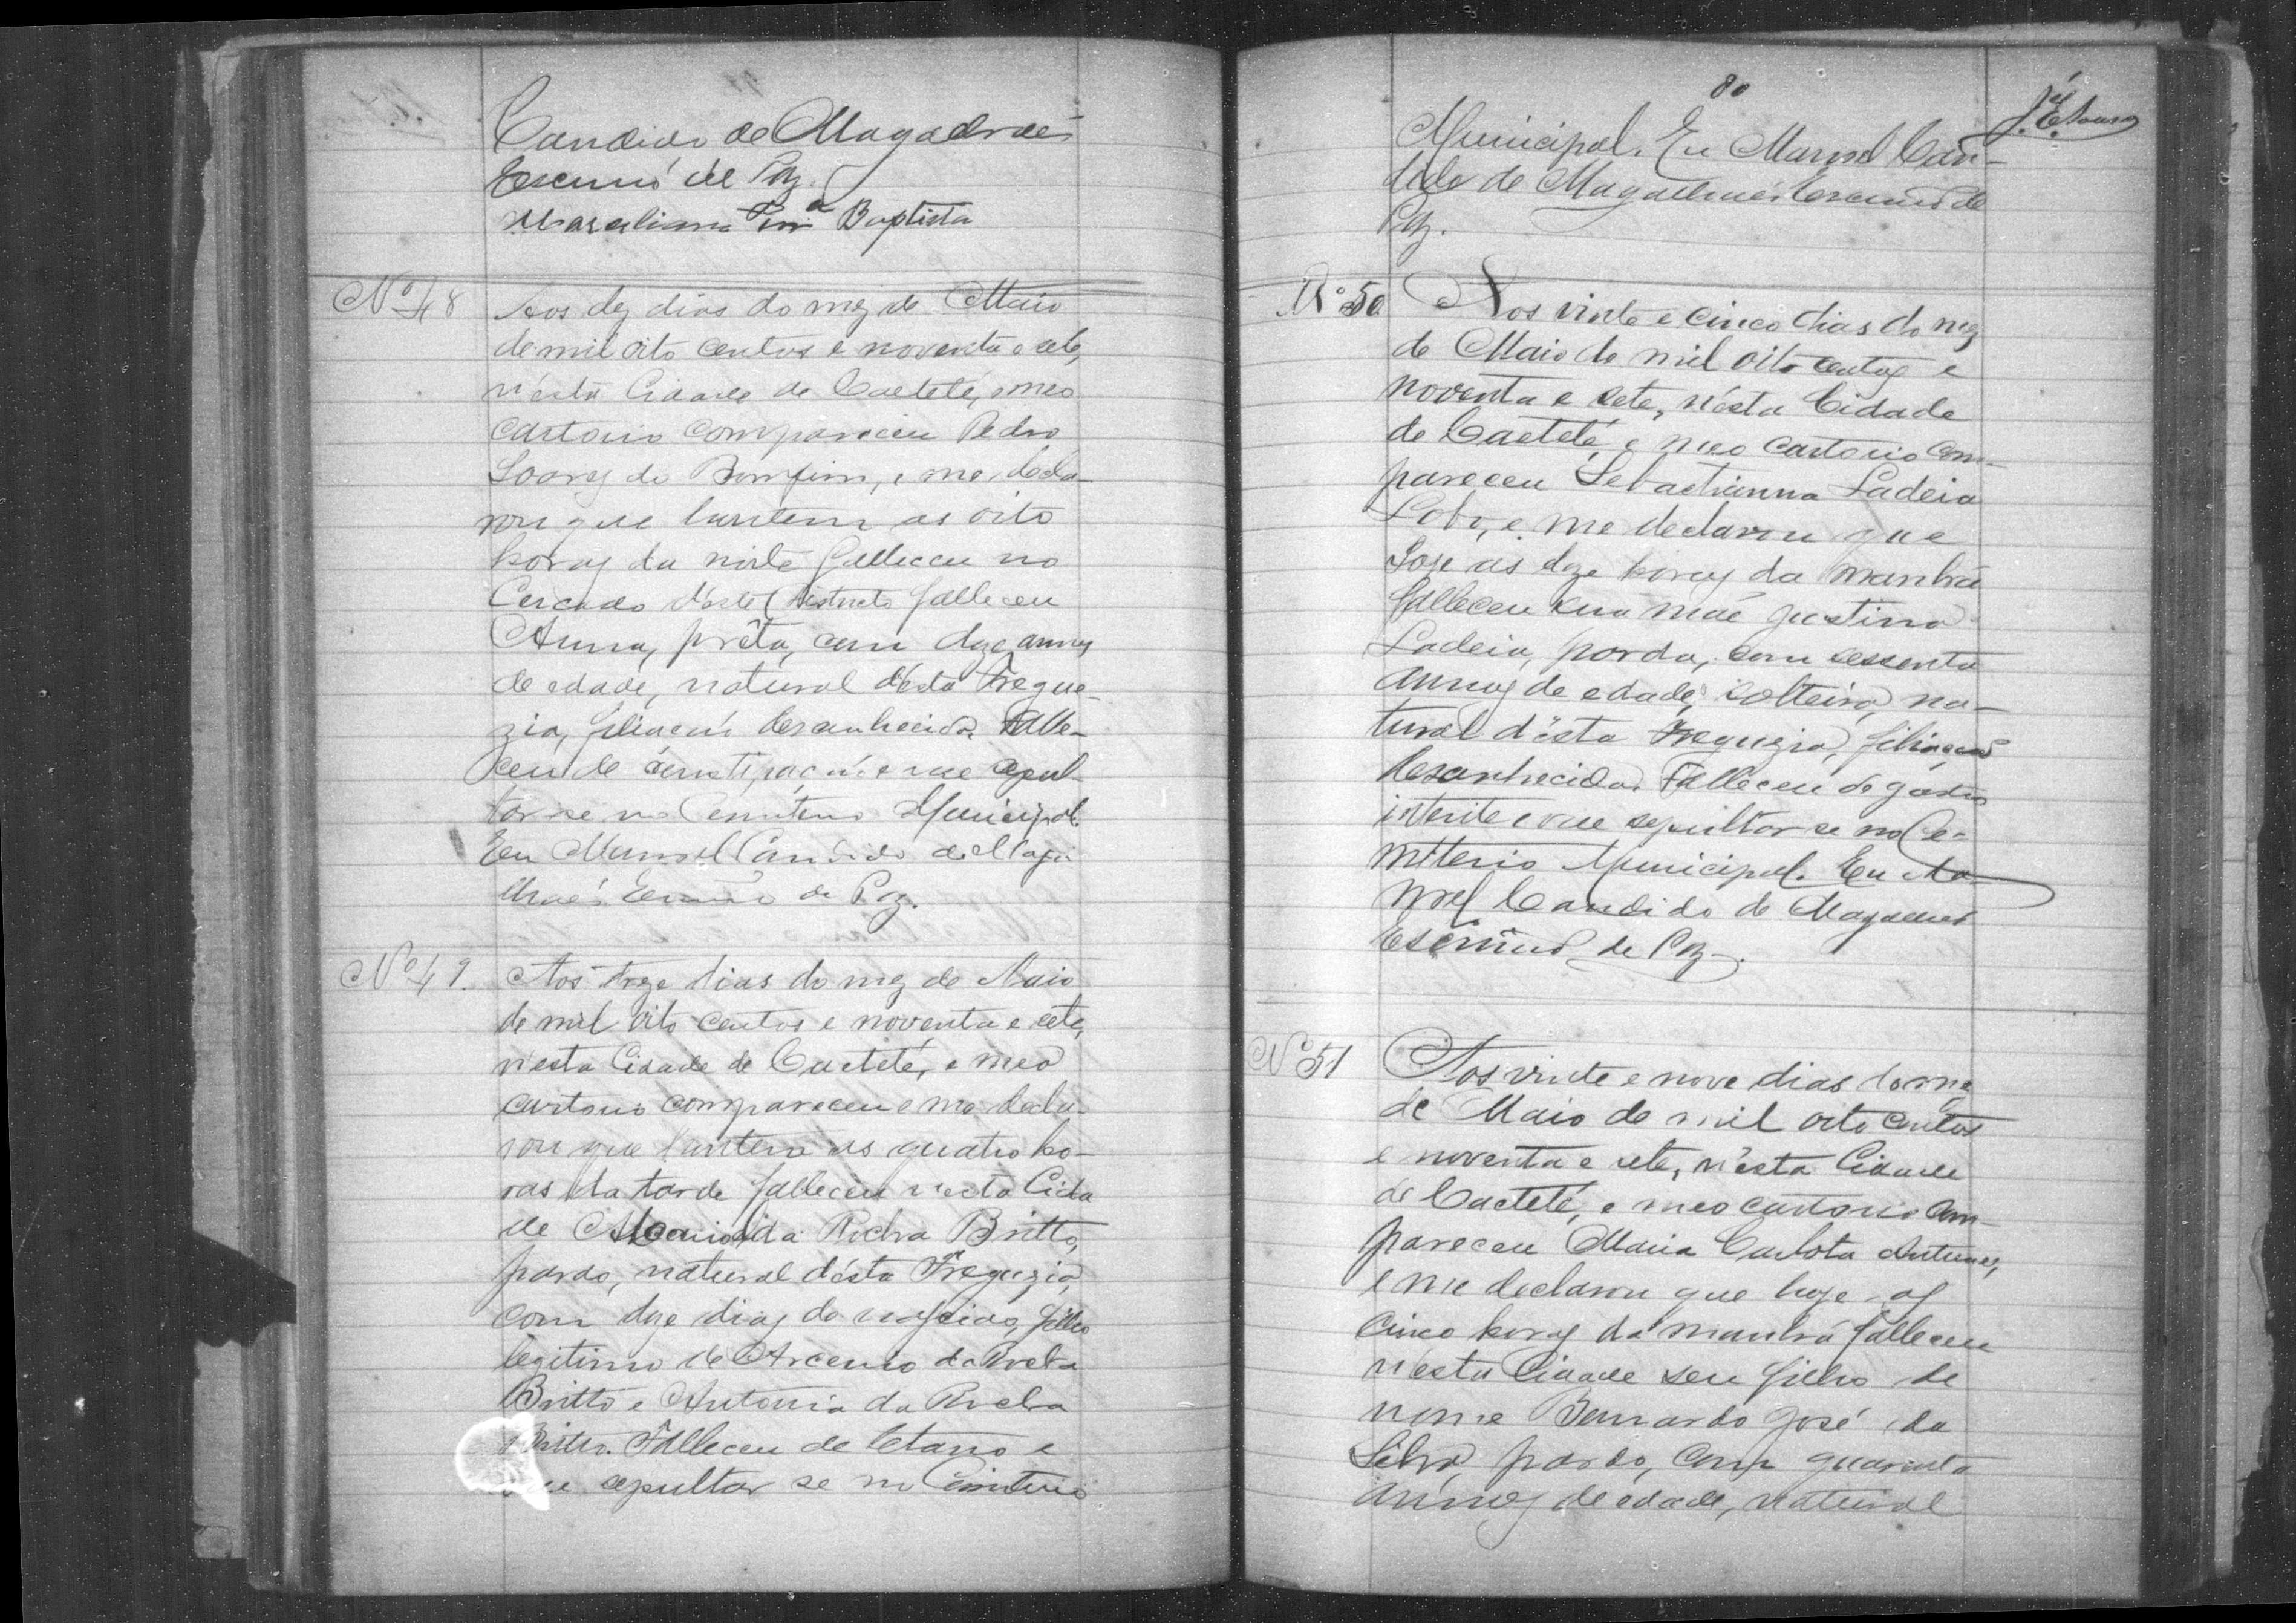 Candido de Magalhães
Escrivão de Paz.
Baptista
Nº 48
Aos dez dias do mez de Maio
de mil oito centos e noventa e sete,
n'esta Cidade de Caeteté, e meo
cartorio compareceu Pedro
Soares do Bomfim, e me decla-
rou que hontem as oito
horas da noite falleceu no
Cercado d'este Districto falleceu
Anna, prêta, com doze annos
de edade, natural d'esta Fregue-
zia, filiação desconhecida. Falle-
ceu de constipação e vae sepul-
tar-se no Cemiterio Municipal.
Eu Manoel Candido de Maga-
lhães Escrivão de Paz.
Nº 49.
Aos treze dias do mez de Maio
de mil oito centos e noventa e sete,
n'esta Cidade de Caeteté, e meo
cartorio compareceu e me decla-
rou que hontem as quatro ho-
ras da tarde falleceu n'esta Cida
de da Rocha Britto,
pardo, natural d'esta Freguezia,
com doze dias de nascido, filho
legitimo de Arcenio da Rocha
Britto e Antonia da Rocha
Britto. Falleceu de tetano e
vae sepultar se no Cemiterio
80
Municipal. Eu Manoel Can-
dido de Magalhães Escrivão de
Paz.
Nº 50
Aos vinte e cinco dias do mez
de Maio de mil oito centos e
noventa e sete, n'esta Cidade
de Caeteté, e meo cartorio com-
pareceu Sebastianna Ladeia
Lobo, e me declarou que
hoje as doze horas da manhã
falleceu sua mãe Justina
Ladeia, parda, com sessenta
annos de edade, solteira, na-
tural d'esta Freguezia, filiação
desconhecida. Falleceu de gastro
interite e vae sepultar se no Ce-
miterio Municipal. Eu Ma-
noel Candido de Magalhães
Escrivão de Paz.
Nº 51
Aos vinte e nove dias do mez
de Maio de mil oito centos
e noventa e sete, n'esta Cidade
de Caeteté, e meo cartorio com-
pareceu Maria Carlota Antunes,
e me declarou que hoje as
cinco horas da manhã falleceu
n'esta Cidade seu filho de
nome Bernardo José da
Silva, pardo, com quarenta
annos de edade, natural